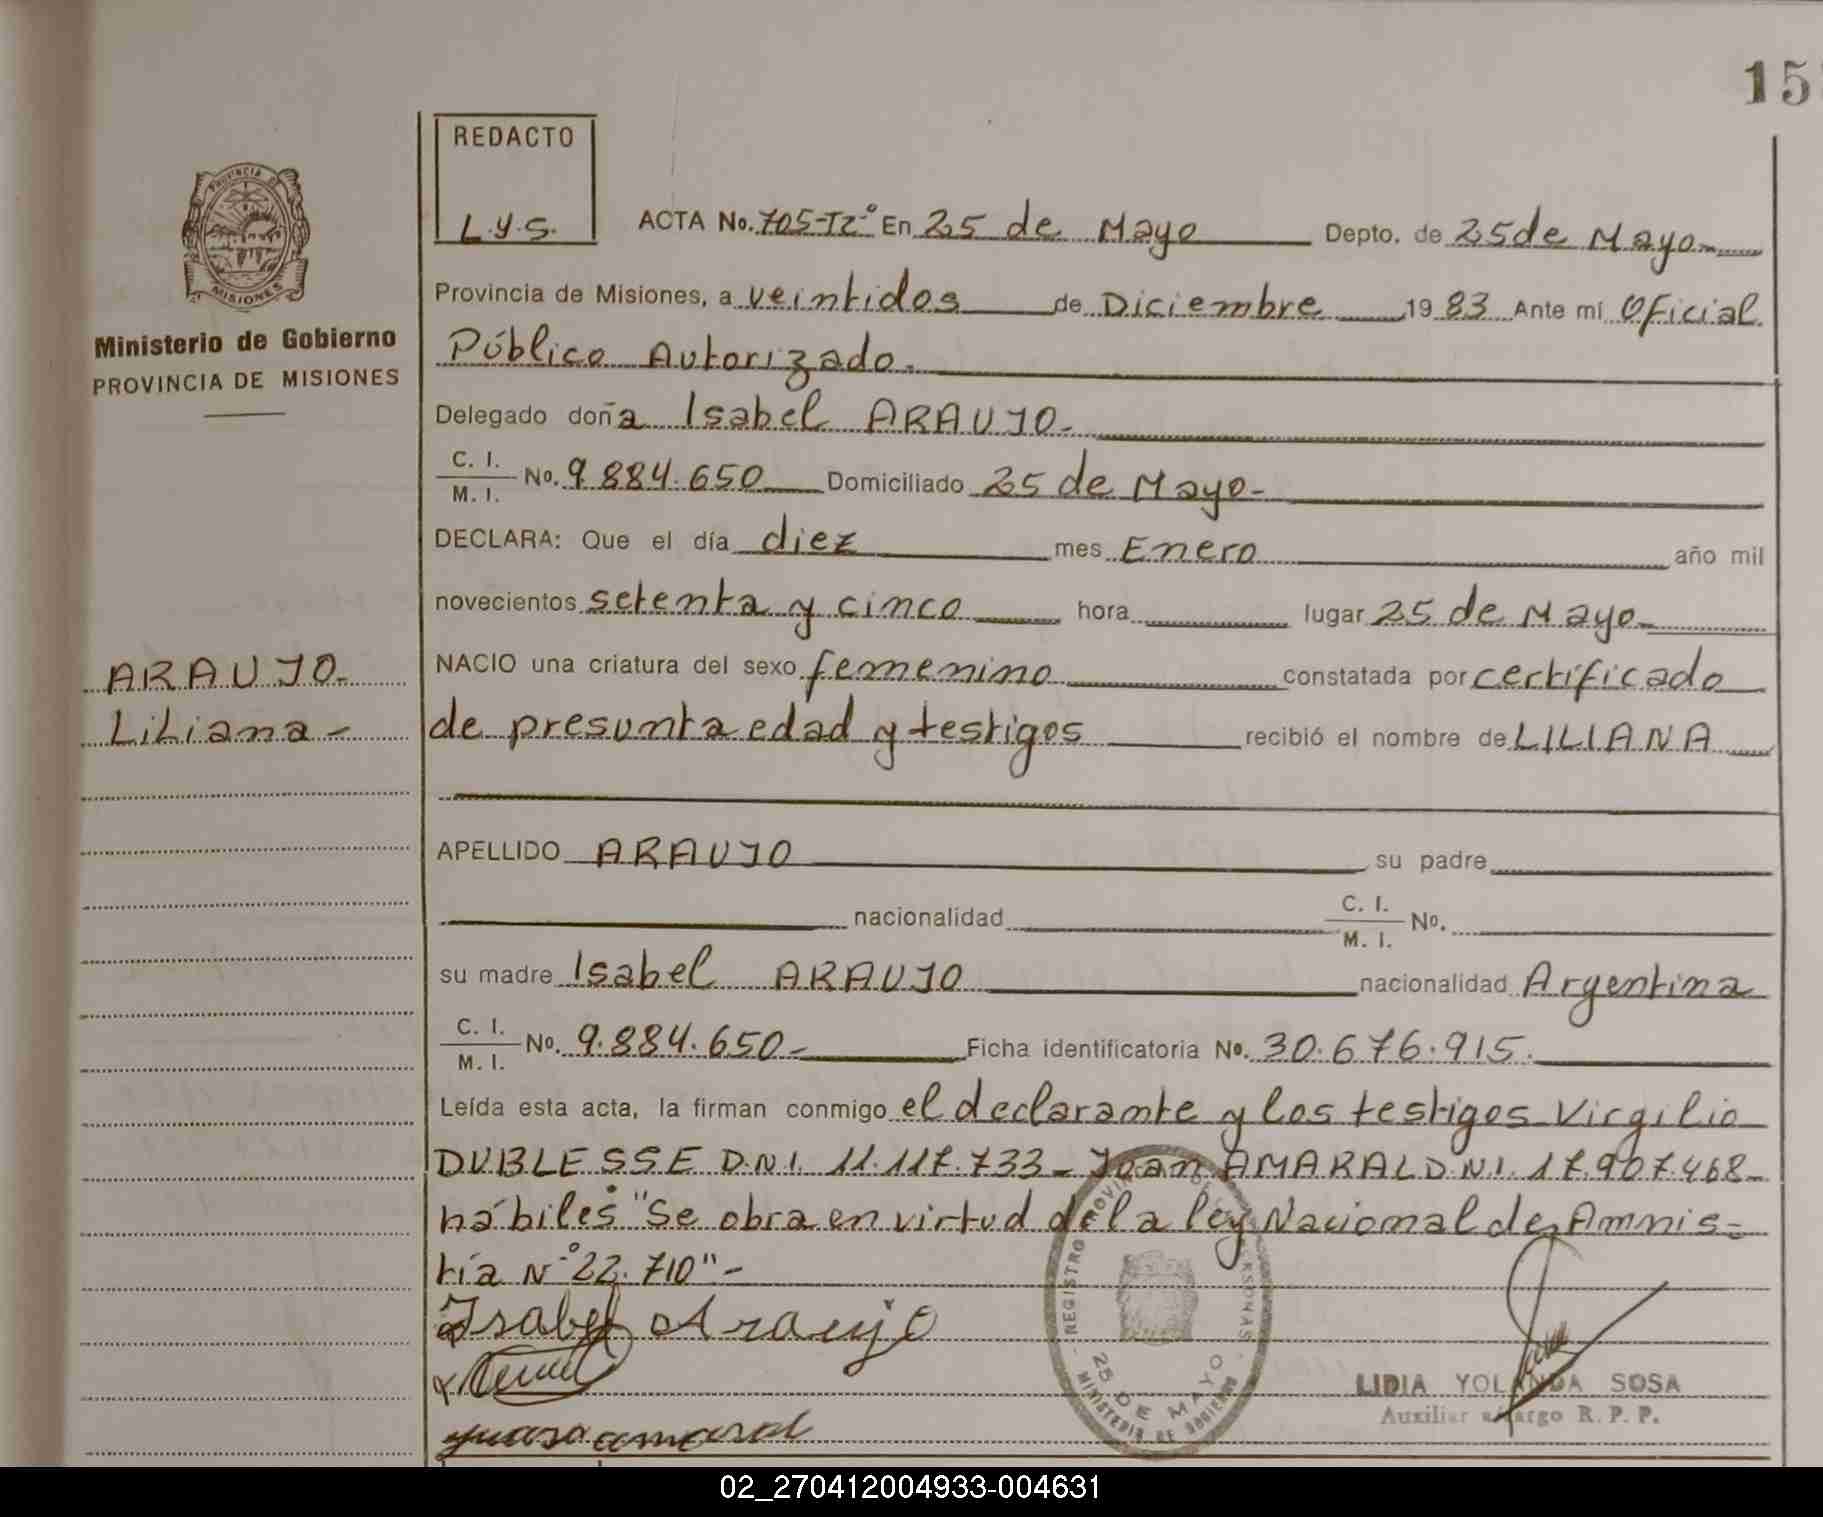 15
REDACTO
L.Y.S.
PROVINCIA DE
MISIONES
Ministerio de Gobierno
PROVINCIA DE MISIONES
ACTA No. 705-T2-° En 25 de Mayo Depto. de 25 de Mayo
Provincia de Misiones, a veintidos de Diciembre 1983 Ante mi Oficial
Público Autorizado.
Delegado doña Isabel ARAUJO-
C. I.
M. I. No. 9.884.650 Domiciliado 25 de Mayo-
DECLARA: Que el día diez mes Enero año mil
novecientos setenta y cinco hora lugar 25 de Mayo
ARAUJO-
Liliana-
NACIO una criatura del sexo femenino constatada por certificado
de presunta edad y testigos recibió el nombre de LILIANA
APELLIDO ARAUJO su padre
nacionalidad C. I.
M. I. No.
su madre Isabel ARAUJO nacionalidad Argentina
C. I.
M. I. No. 9.884.650- Ficha identificatoria No. 30.676.915.
Leída esta acta, la firman conmigo el declarante y los testigos Virgilio
DUBLESSE D.N.I. 11.117.733- Joan AMARAL D.N.I. 17.907.468-
hábiles "Se obra en virtud de la ley Nacional de Amnis-
tía N-° 22.710"-
Isabel Araujo
REGISTRO PROVINCIAL DE PERSONAS
25 DE MAYO
MINISTERIO DE GOBIERNO
LIDIA YOLANDA SOSA
Auxiliar a Cargo R. P. P.
amaral
02_270412004933-004631